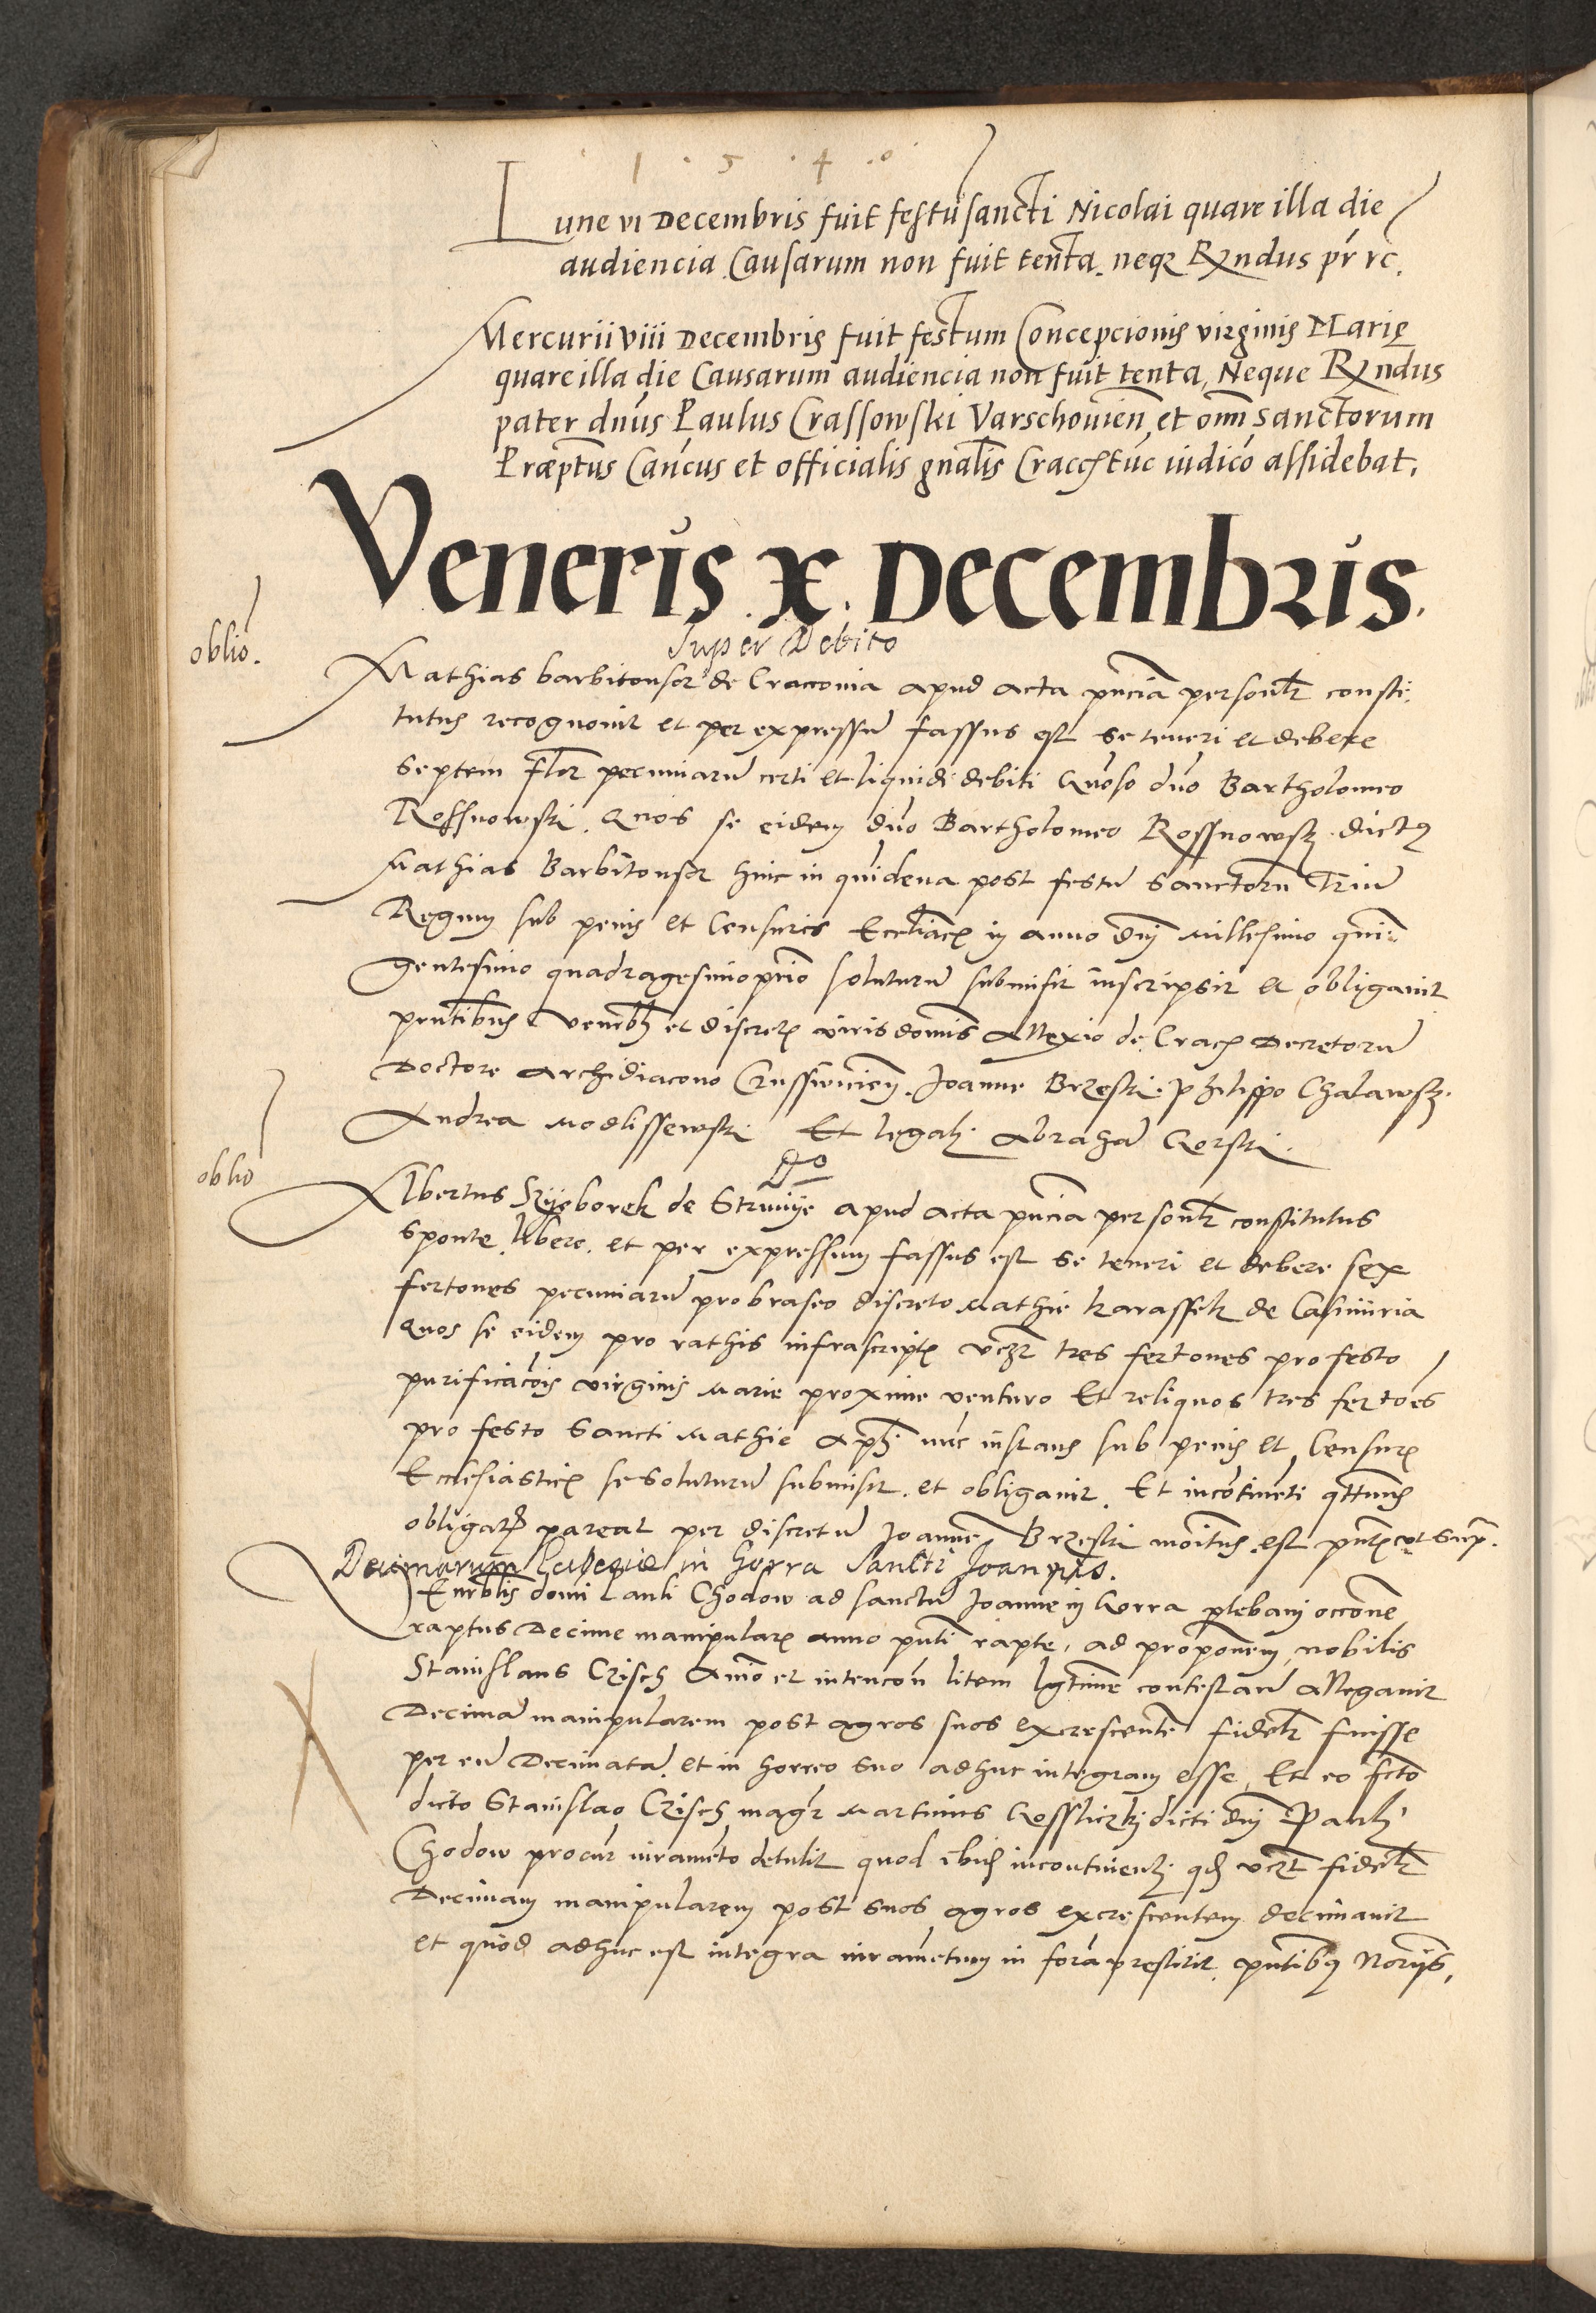 1 5 4 0
Lune vi Decembris fuit festū sancti Nicolai quare illa die
audiencia Causarum non fuit tenta. neqz Rx̄ndus pr̄ rc.
Mercurii viii Decembris fuit festum Concepcionis virginis Marię
quare illa die Causarum audiencia non fuit tenta, Neque Rx̄ndus
pater dn̄us Paulus Crassowski Varschouien̄ et om̄ sanctorum
Præptus Can̄cus et officialis gn̄alis Cracc̄ tūc iudic̄o assidebat.
Veneris x. Decembris.
Super Debito
oblio.
Mathias barbitonsor de Cracconia apud acta pn̄cia personlr̄ consti:
tutus recognouit et per expressū fassus est se teneri et debere
septem flor̄ pecuniarū certi et liquidi debiti dn̄o Bartholomeo
Rossnowski. quos se eidem dn̄o Bartholomeo Rossnowsk dictus
Mathias Barbitonsor hinc in quidena post festū sanctorū Triū
Regum sub penis et Censuris in anno dn̄i Millesimo quin
gentesimo quadragesimoprīo soluturū submisit inscripsit et obligauit
pn̄tibus et discret viris domīs Allexio de Crac Decretorū
Doctore Archidiacono Crussuicien̄. Joanne Brzeski. Philippo Chalawsk.
Andrea Modlissewski Et legal Abrahā Gorski.
oblio
Albertus de apud acta pn̄cia personlr̄ constitutus
sponte libere. et per expressum fassus est se teneri et debere sex
fertones pecuniarū pro braseo discreto Mathie karassek de Casimiria
quos se eidem pro rathis infrascript vczt tres fertones pro festo
purificac̄ois virginis Marie proxime venturo Et reliquos tres fertōes
pro festo Sancti Mathie nūc instans sub penis et Censur
Ecclesiastic se soluturū submisit. et obligauit. Et incōtinēti
obligat pareat per discretū Joannē Brzeski mōitus est
Decimarum in horra Sancti Joannis.
domī Pauli Chodow ad sanctū Joannē in Gorra plebani occ̄one
raptus Decime manipular anno pn̄ti rapte, ad propon̄em nobilis
Stanislaus Czisch et intencōn litem contestan̄ Allegauit
Decimā manipularem post agros suos excrescentē fidelr̄ fuisse
per eū Decimatā. et in horreo suo adhuc integram esse, Et eo
dicto Stanislao Czisch magr̄ Martinus dicti dn̄i Pauli
Chodow procur̄ iuramēto detulit quod incontinent vczt fidelr̄
Decimam manipularem post suos agros excrescentem decimauit
et quod adhuc est integra iuramētum in formā prestitit. pn̄tibus Norijs,